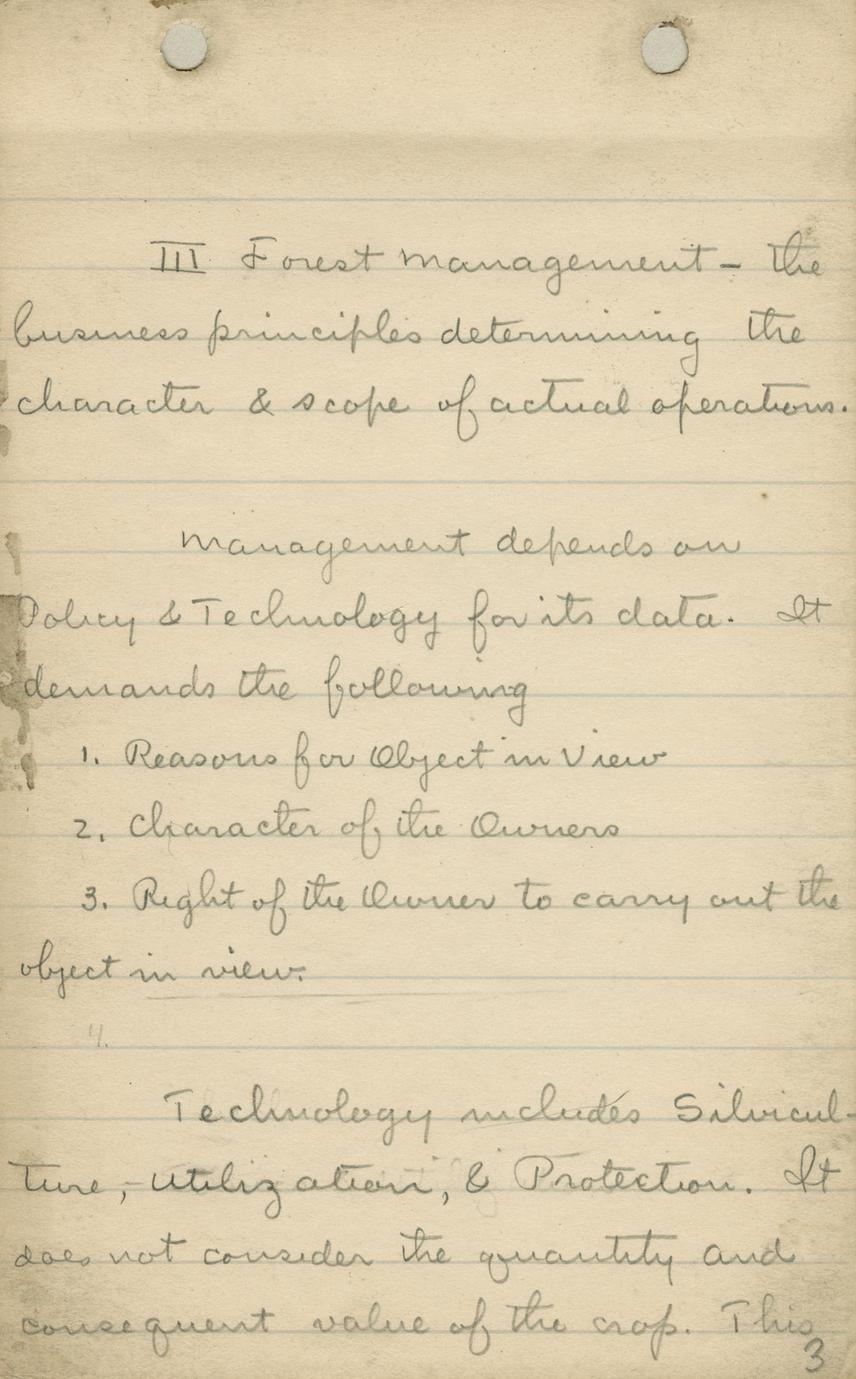 III Forest Management - the
business principles determining the
character & scope of actual operations.
Management depends on
Policy & Technology for its data. It
demands the following
1. Reasons for Object in View
2. Character of the Owners
3. Right of the Owner to carry out the
object in view.
4.
Technology includes Silvicul-
ture, utilization, & Protection. It
does not consider the quantity and
consequent value of the crop. This
3